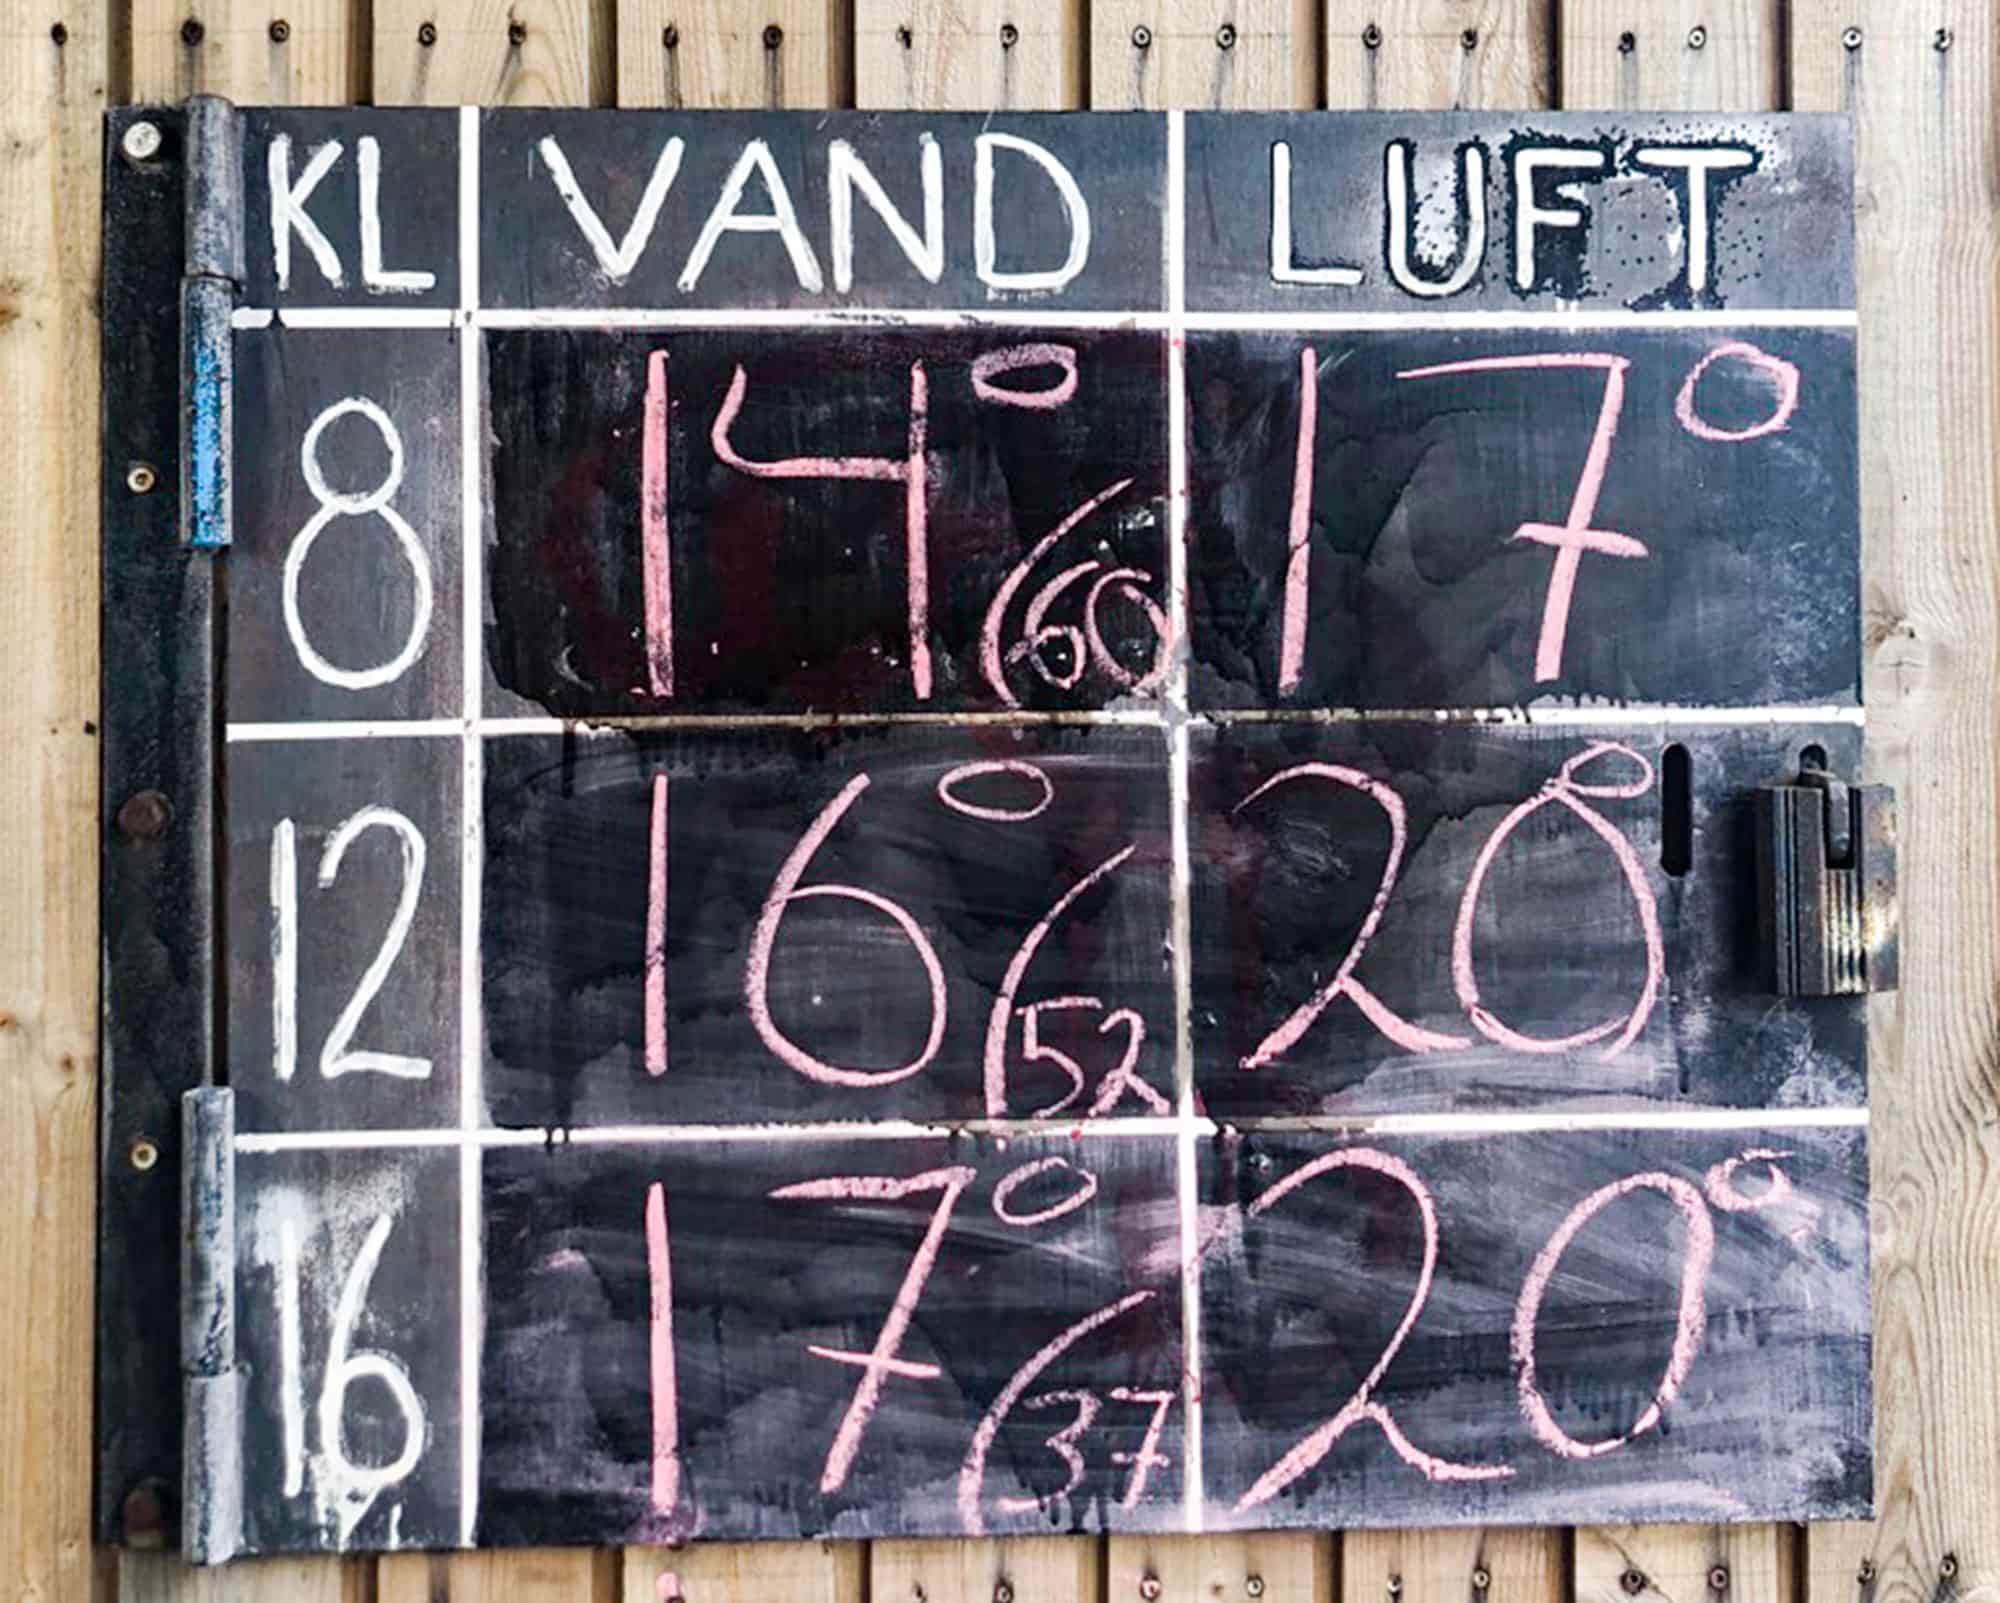 KL VAND LUFT
8 14° (60 17°
12 16° (52 20°
16 17° (37 20°